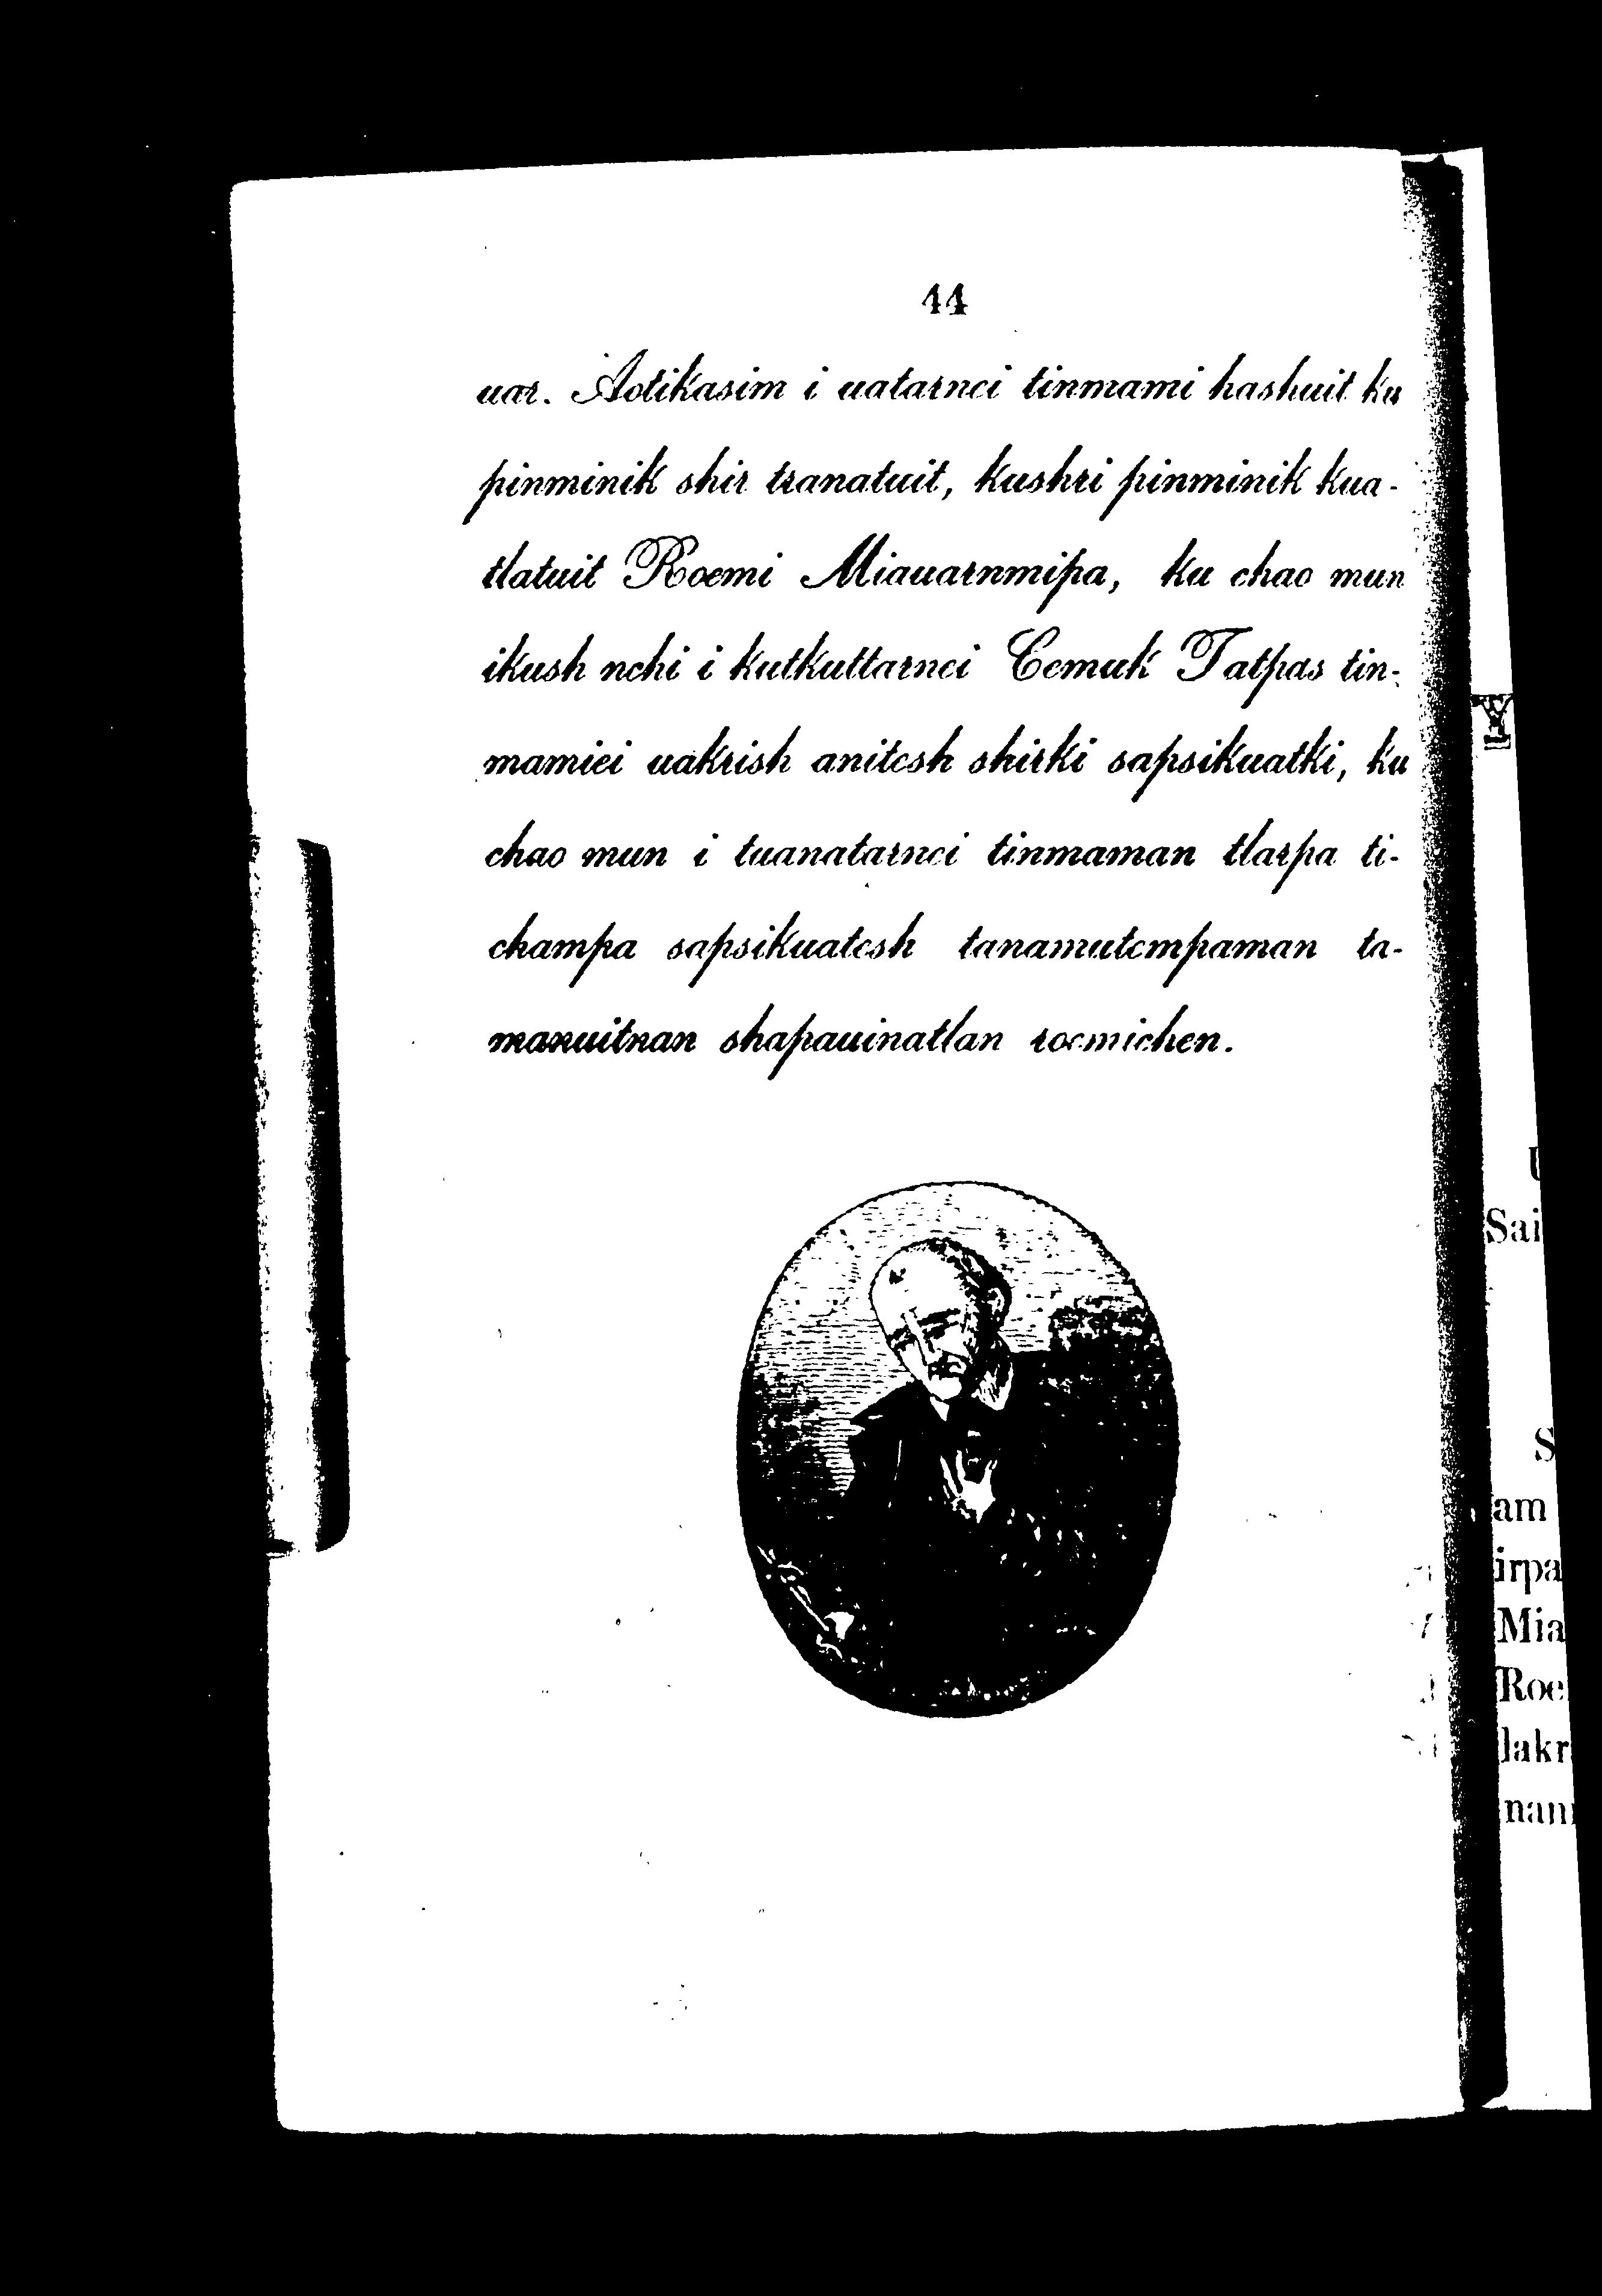 44
uar. Aotikasim i uatarnei tinmami hashuit ku
pinminik shir tranatuit, kushri pinminik kua-
tlatuit Roemi Miauarnmipa, ku chao mun
ikush nchi i kutkuttarnei Eemuk Tatpas tin-
mamiei uakrish anitesh shirki sapsikuatki, ku
chao mun i tuanatarnei tinmaman tlarpa ti-
champa sapsikuatesh tanamutempaman ta-
manuitnan shapauinatlan roemichen.
Sai
S
am
irpa
Mia
Roe
lakr
nan